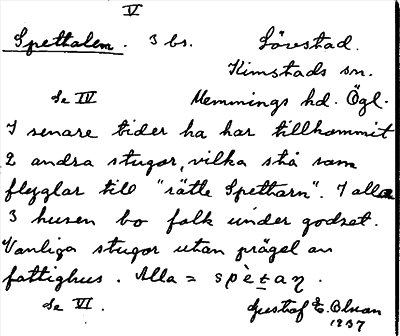 V
Spettalem. 3 bs. Lörestad.
Kimstads sn.
Se IV Memmings hd. Ögl.
I senare tider ha har tillkommit
2 andra stugor, vilka stå som
flyglar till "rätte Spettarn". I alla
3 husen bo folk under godset.
Vanliga stugor utan prägel av
fattighus. Alla = spètaƞ.
Se VI. Gustaf E. Olson
1937